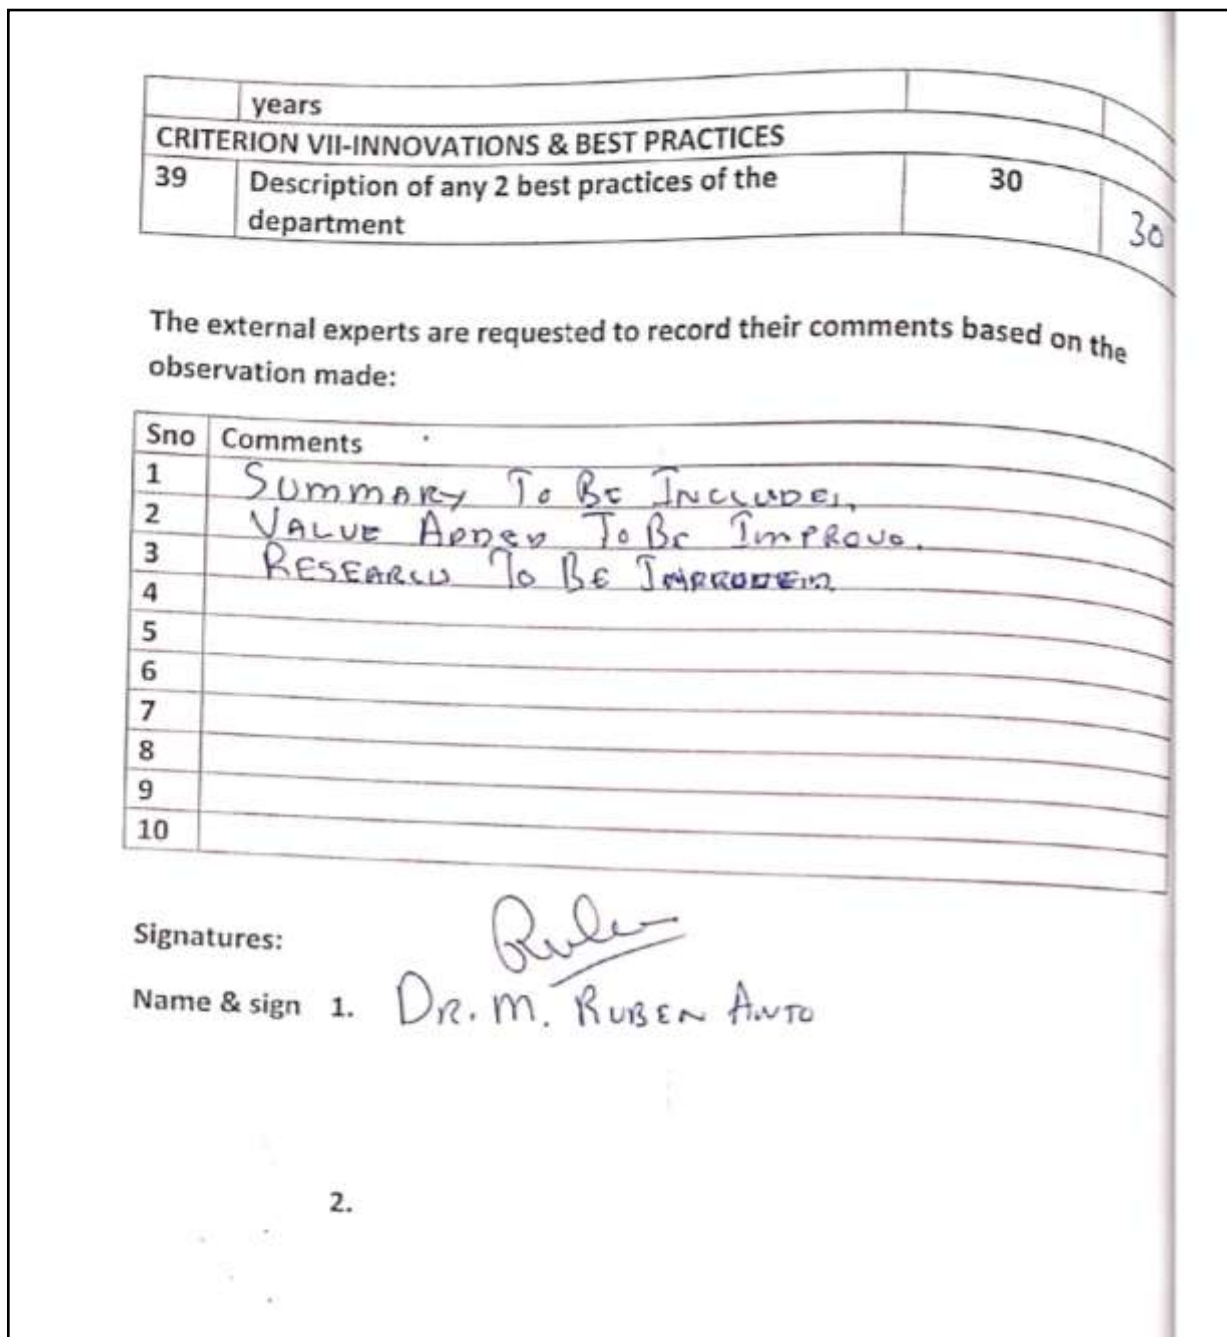 years
CRITERION VII-INNOVATIONS & BEST PRACTICES
39 Description of any 2 best practices of the 30
department 30
The external experts are requested to record their comments based on the
observation made:
Sno Comments
1 SUMMARY TO BE INCLUDED,
2 VALUE ADDED TO BE IMPROVE.
3 RESEARCH TO BE IMPROVED.
4
5
6
7
8
9
10
Signatures: Ruben
Name & sign 1. DR. M. RUBEN ANTO
2.